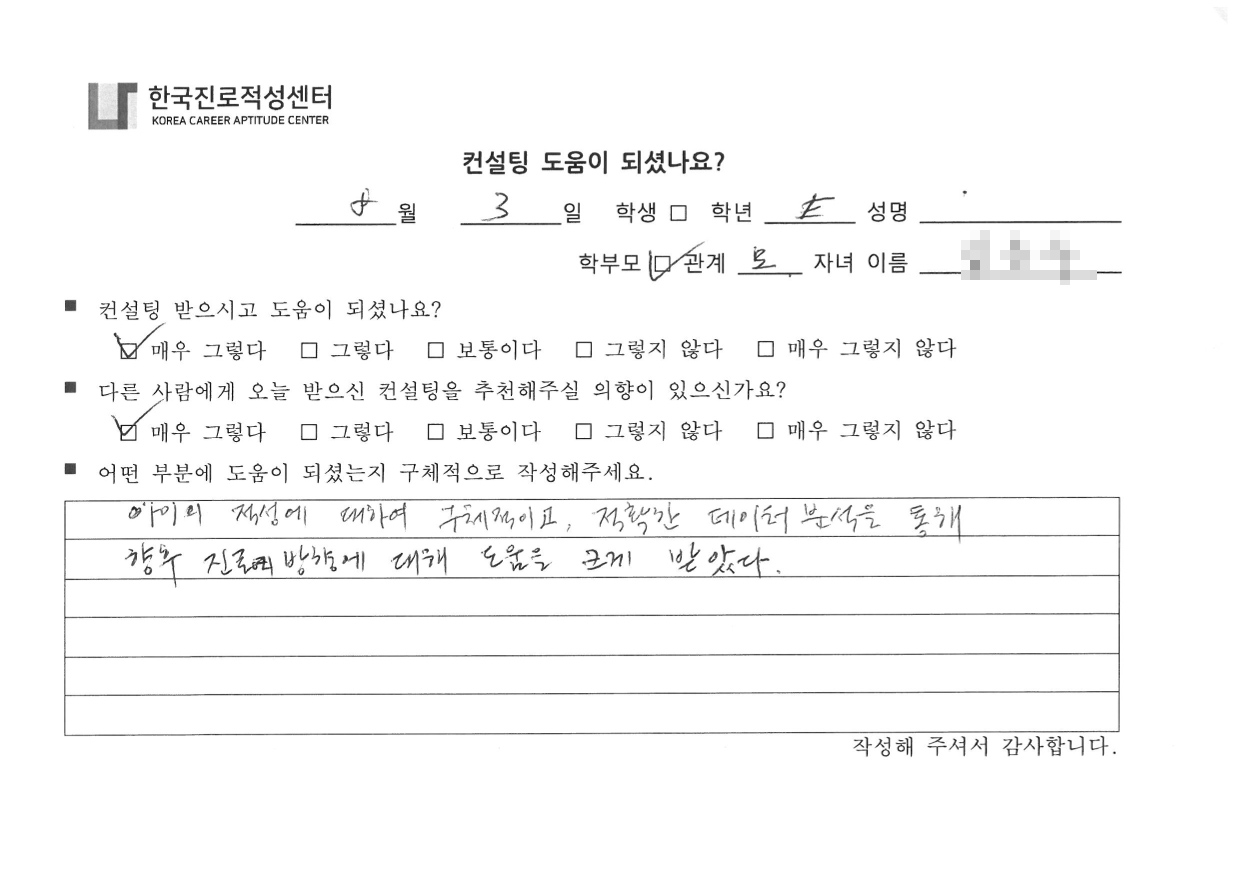 한국진로적성센터
KOREA CAREER APTITUDE CENTER
컨설팅 도움이 되셨나요?
8 월 3 일 학생 □ 학년 성명
학부모 ☑ 관계 모 자녀 이름
■ 컨설팅 받으시고 도움이 되셨나요?
☑ 매우 그렇다 □ 그렇다 □ 보통이다 □ 그렇지 않다 □ 매우 그렇지 않다
■ 다른 사람에게 오늘 받으신 컨설팅을 추천해주실 의향이 있으신가요?
☑ 매우 그렇다 □ 그렇다 □ 보통이다 □ 그렇지 않다 □ 매우 그렇지 않다
■ 어떤 부분에 도움이 되셨는지 구체적으로 작성해주세요.
아이의 적성에 대하여 구체적이고, 적확한 데이터 분석을 통해
향후 진로의 방향에 대해 도움을 크게 받았다.
작성해 주셔서 감사합니다.